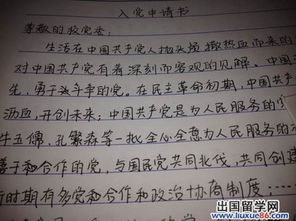 入党申请书
尊敬的敌党委:
生活在中国共产党人抛头颅撒热血而来的
对中国共产党有着深刻而客观的见解。中国
先,勇于决斗争的党。在民主革命初期,中国共
沥血,开创未来;中国共产党是为人民服务的
牛玉儒、孔繁森等一批全心全意为人民服务的
善于和合作的党,与国民党共同北伐,共同创建
新时期有多党和合作和政治协商制度:
出国留学网
www.liuxue86.com